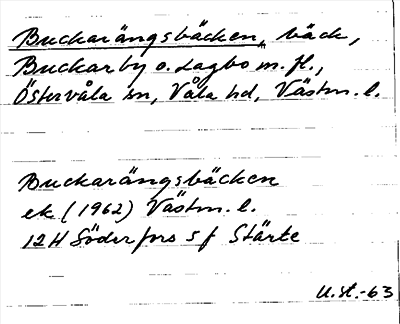 Buckarängsbäcken, bäck,
Buckarby o. Lagbo m. fl.,
Östervåla sn, Våla hd, Västm. l.
Buckarängsbäcken
ek (1962) Västm. l.
12H Söderfors 5f Stärte
U.st.-63